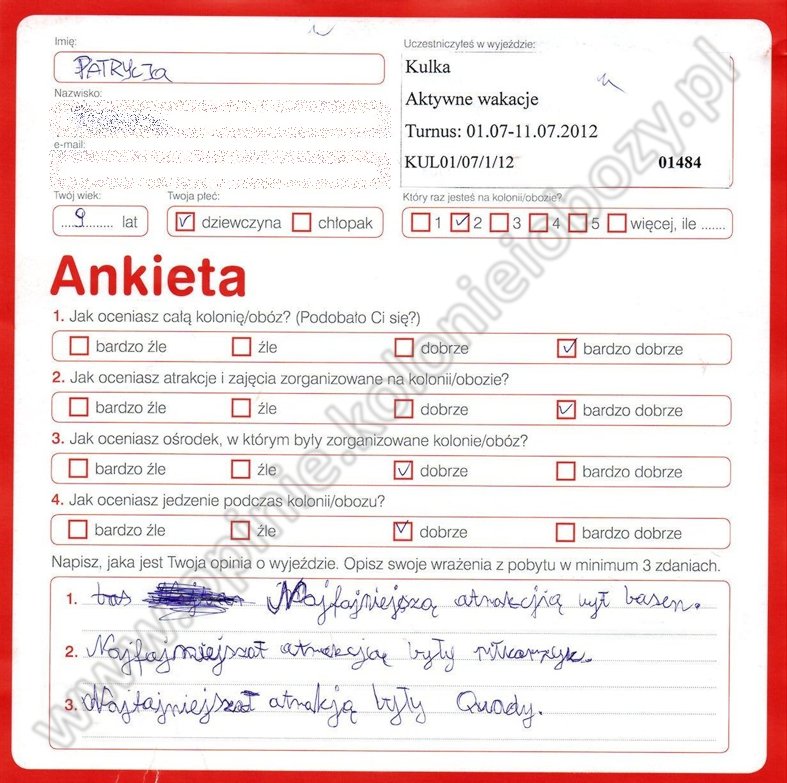 Imię:
PATRYCJA
Nazwisko:
e-mail:
Twój wiek:
9 lat
Twoja płeć:
dziewczyna chłopak
Uczestniczyłeś w wyjeździe:
Kulka
Aktywne wakacje
Turnus: 01.07-11.07.2012
KUL01/07/1/12 01484
Który raz jesteś na kolonii/obozie?
1 2 3 4 5 więcej, ile .......
Ankieta
1. Jak oceniasz całą kolonię/obóz? (Podobało Ci się?)
bardzo źle źle dobrze bardzo dobrze
2. Jak oceniasz atrakcje i zajęcia zorganizowane na kolonii/obozie?
bardzo źle źle dobrze bardzo dobrze
3. Jak oceniasz ośrodek, w którym były zorganizowane kolonie/obóz?
bardzo źle źle dobrze bardzo dobrze
4. Jak oceniasz jedzenie podczas kolonii/obozu?
bardzo źle źle dobrze bardzo dobrze
Napisz, jaka jest Twoja opinia o wyjeździe. Opisz swoje wrażenia z pobytu w minimum 3 zdaniach.
1. Najfajniejszą atrakcjią był basen.
2. atrakcją były piłkarzyk.
3. atrakją były Quady.
www.opinie.kolonieiobozy.pl